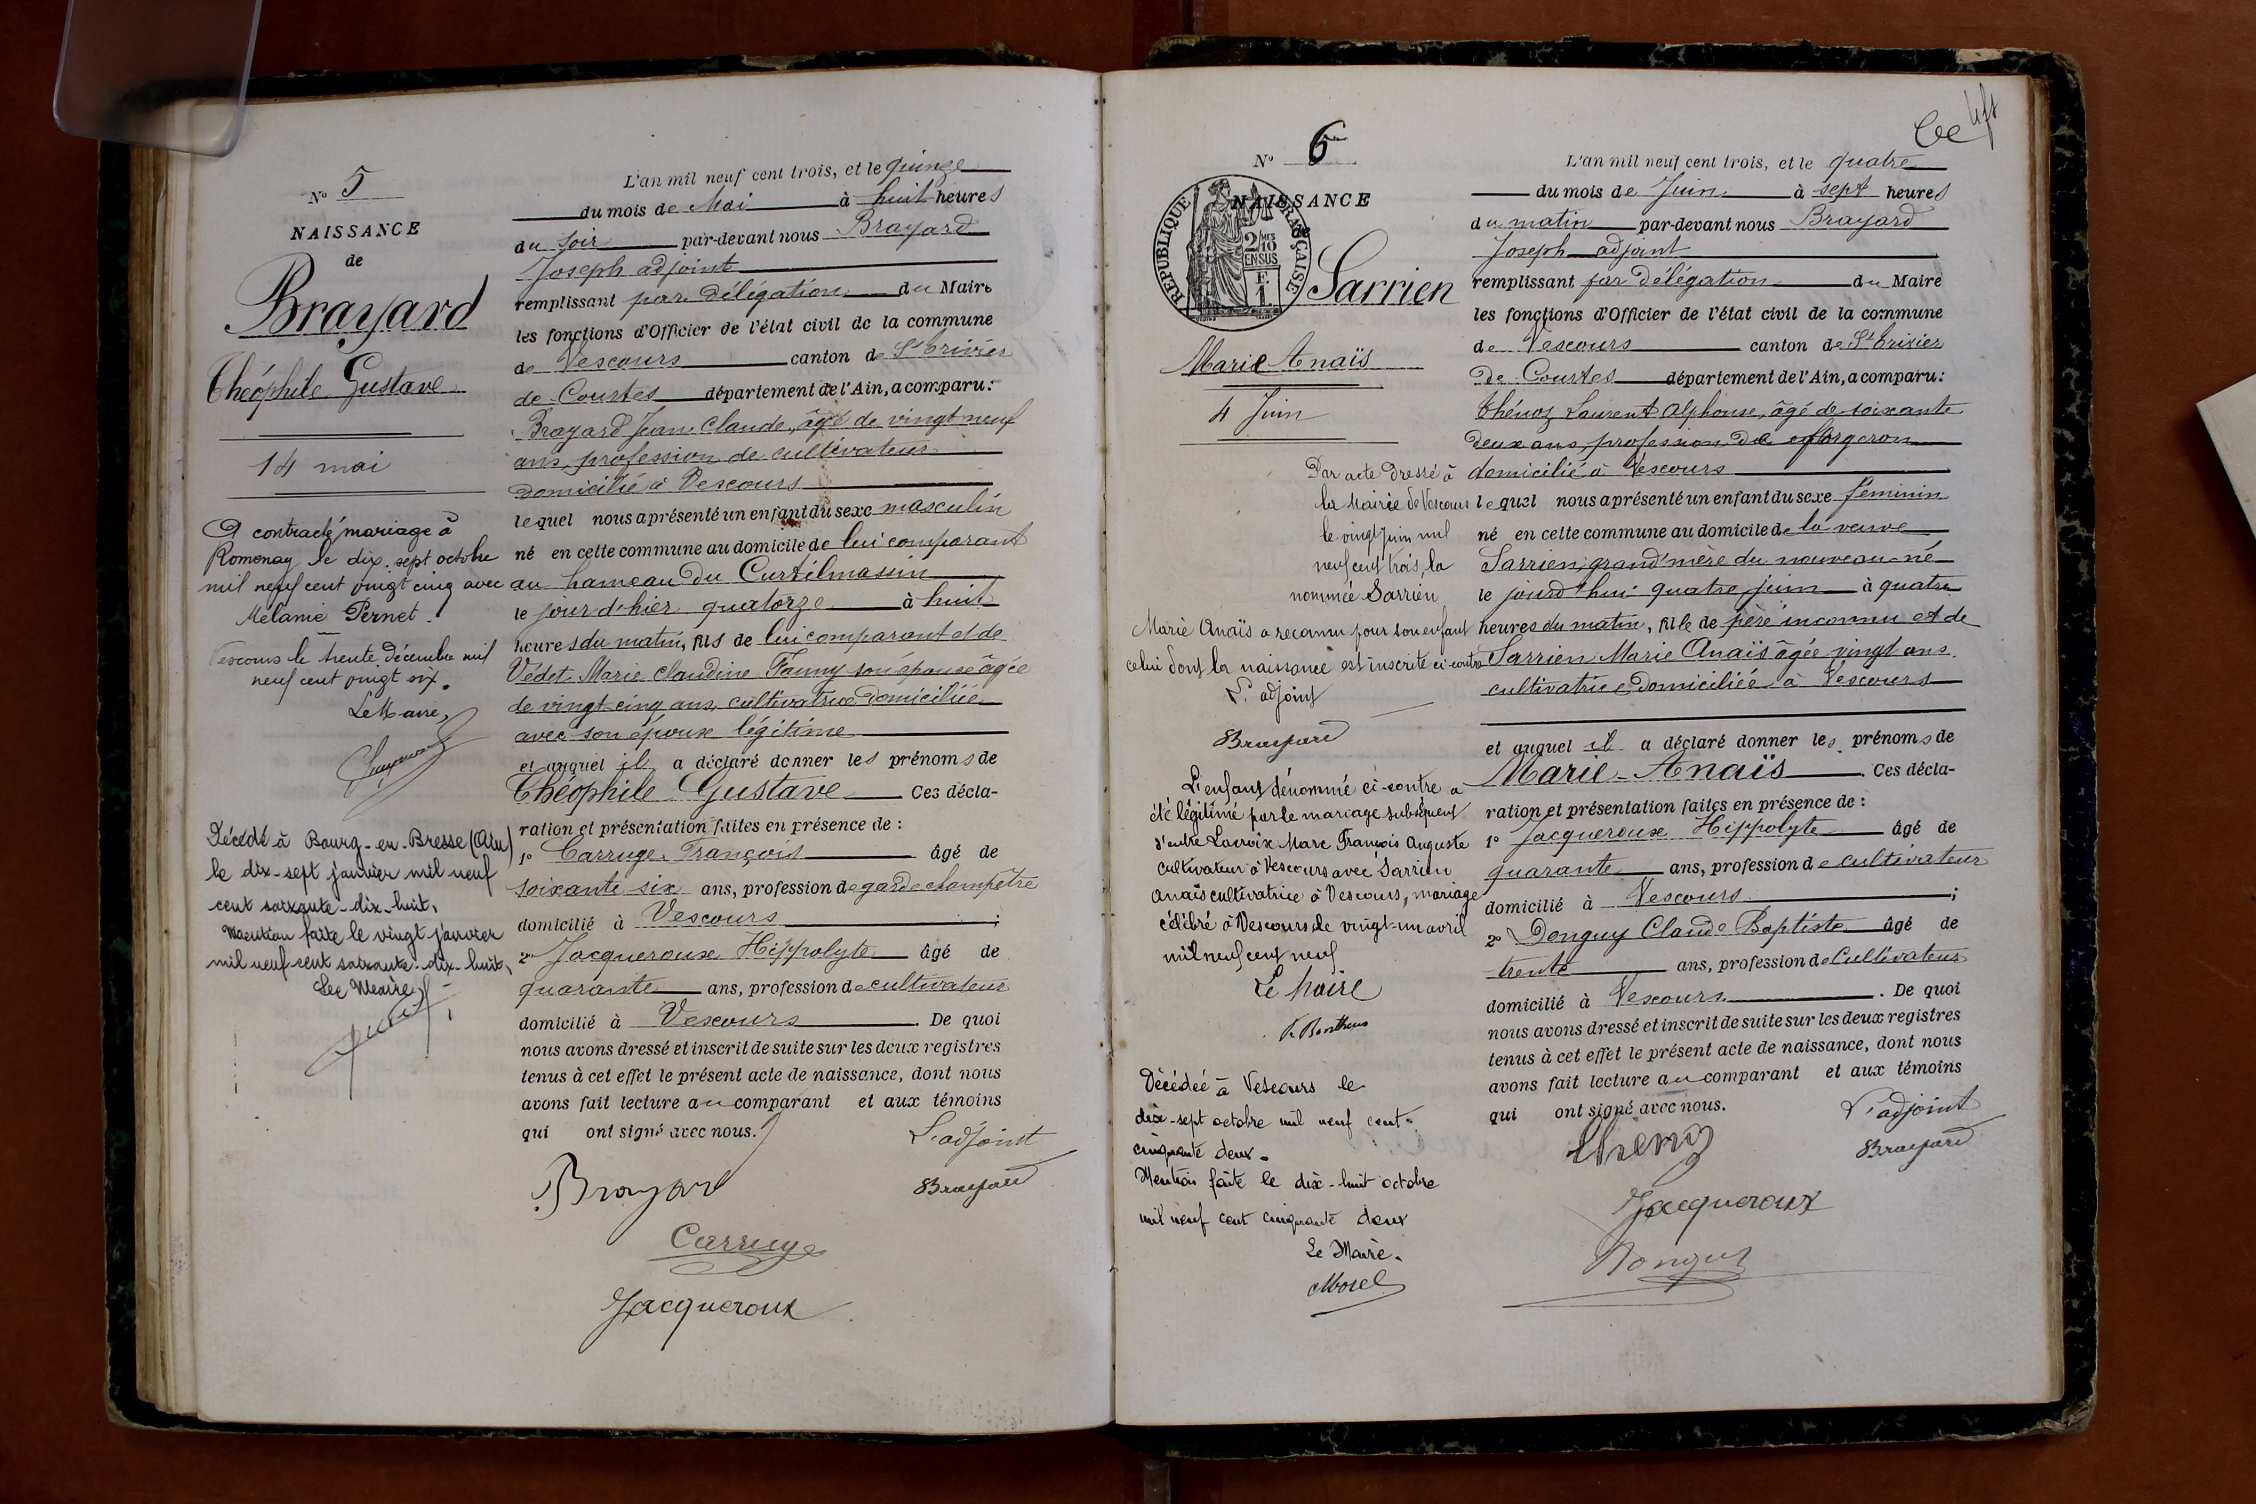 N° 5
NAISSANCE
de
Brayard
Théophile Gustave
14 mai
A contracté mariage à
Romenay le dix-sept octobre
mil neuf cent vingt cinq avec
Mélanie Pernet.
Vescours le trente décembre mil
neuf cent vingt six.
Le Maire,
Décédé à Bourg-en-Bresse (Ain)
le dix-sept janvier mil neuf
cent soixante-dix-huit,
Mention faite le vingt janvier
mil neuf cent soixante-dix-huit,
Le Maire,
L'an mil neuf cent trois, et le quinze
du mois de Mai à huit heures
du soir par-devant nous Brayard
Joseph adjoint
remplissant par délégation du Maire
les fonctions d'Officier de l'état civil de la commune
de Vescours canton de St Trivier
de Courtes département de l'Ain, a comparu:
Brayard Jean Claude, âgé de vingt neuf
ans, profession de cultivateur
domicilié à Vescours
lequel nous a présenté un enfant du sexe masculin
né en cette commune au domicile de lui comparant
au hameau du Curtilmassin
le jour d'hier quatorze à huit
heures du matin, fils de lui comparant et de
Védet Marie Claudine Fanny son épouse âgée
de vingt cinq ans, cultivatrice domiciliée
avec son époux légitime
et auquel il a déclaré donner les prénoms de
Théophile Gustave Ces décla-
ration et présentation faites en présence de :
1° Carruge François âgé de
soixante six ans, profession de garde champêtre
domicilié à Vescours ;
2° Jacqueroux Hippolyte âgé de
quarante ans, profession de cultivateur
domicilié à Vescours . De quoi
nous avons dressé et inscrit de suite sur les deux registres
tenus à cet effet le présent acte de naissance, dont nous
avons fait lecture au comparant et aux témoins
qui ont signé avec nous.
L'adjoint
Brayard
Brayard
Carruge
Jacqueroux
N° 6
NAISSANCE
REPUBLIQUE FRANÇAISE
2/10
EN SUS
Sarrien
Marie Anaïs
4 Juin
Par acte dressé à
la Mairie de Vescours
le vingt juin mil
neuf cent trois, la
nommée Sarrien
Marie Anaïs a reconnu pour son enfant
celui dont la naissance est inscrite ci-contre
L'adjoint
Brayard
L'enfant dénommé ci-contre a
été légitimé par le mariage subséquent
d'entre Lacroix Marc François Auguste
cultivateur à Vescours avec Sarrien
Anaïs cultivatrice à Vescours, mariage
célébré à Vescours le vingt-un avril
mil neuf cent neuf
Le Maire
Décédée à Vescours le
dix-sept octobre mil neuf cent
cinquante deux.
Mention faite le dix-huit octobre
mil neuf cent cinquante deux
Le Maire.
Morel
L'an mil neuf cent trois, et le quatre
du mois de Juin à sept heures
du matin par-devant nous Brayard
Joseph adjoint
remplissant par délégation du Maire
les fonctions d'Officier de l'état civil de la commune
de Vescours canton de St Trivier
de Courtes département de l'Ain, a comparu:
Thénoz Laurent Alphonse, âgé de soixante
deux ans, profession de forgeron
domicilié à Vescours
lequel nous a présenté un enfant du sexe féminin
né en cette commune au domicile de la veuve
Sarrien, grand'mère du nouveau-né
le jourd'hui quatre juin à quatre
heures du matin, fille de père inconnu et de
Sarrien Marie Anaïs âgée vingt ans
cultivatrice domiciliée à Vescours
et auquel il a déclaré donner les prénoms de
Marie-Anaïs . Ces décla-
ration et présentation faites en présence de :
1° Jacqueroux Hippolyte âgé de
quarante ans, profession de cultivateur
domicilié à Vescours ;
2° Donguy Claude Baptiste âgé de
trente ans, profession de Cultivateur
domicilié à Vescours . De quoi
nous avons dressé et inscrit de suite sur les deux registres
tenus à cet effet le présent acte de naissance, dont nous
avons fait lecture au comparant et aux témoins
qui ont signé avec nous.
L'adjoint
Thénoz
Brayard
Jacqueroux
Donguy